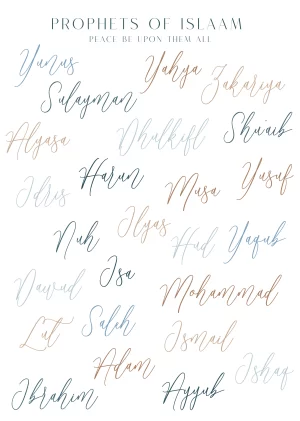 PROPHETS OF ISLAAM
PEACE BE UPON THEM ALL
Yunus
Yahya
Zakariya
Sulayman
Alyasa
Dhulkifl
Shu'aib
Idris
Harun
Musa
Yusuf
Nuh
Ilyas
Hud
Yaqub
Dawud
Isa
Mohammad
Lut
Saleh
Ismail
Adam
Ishaq
Ibrahim
Ayyub